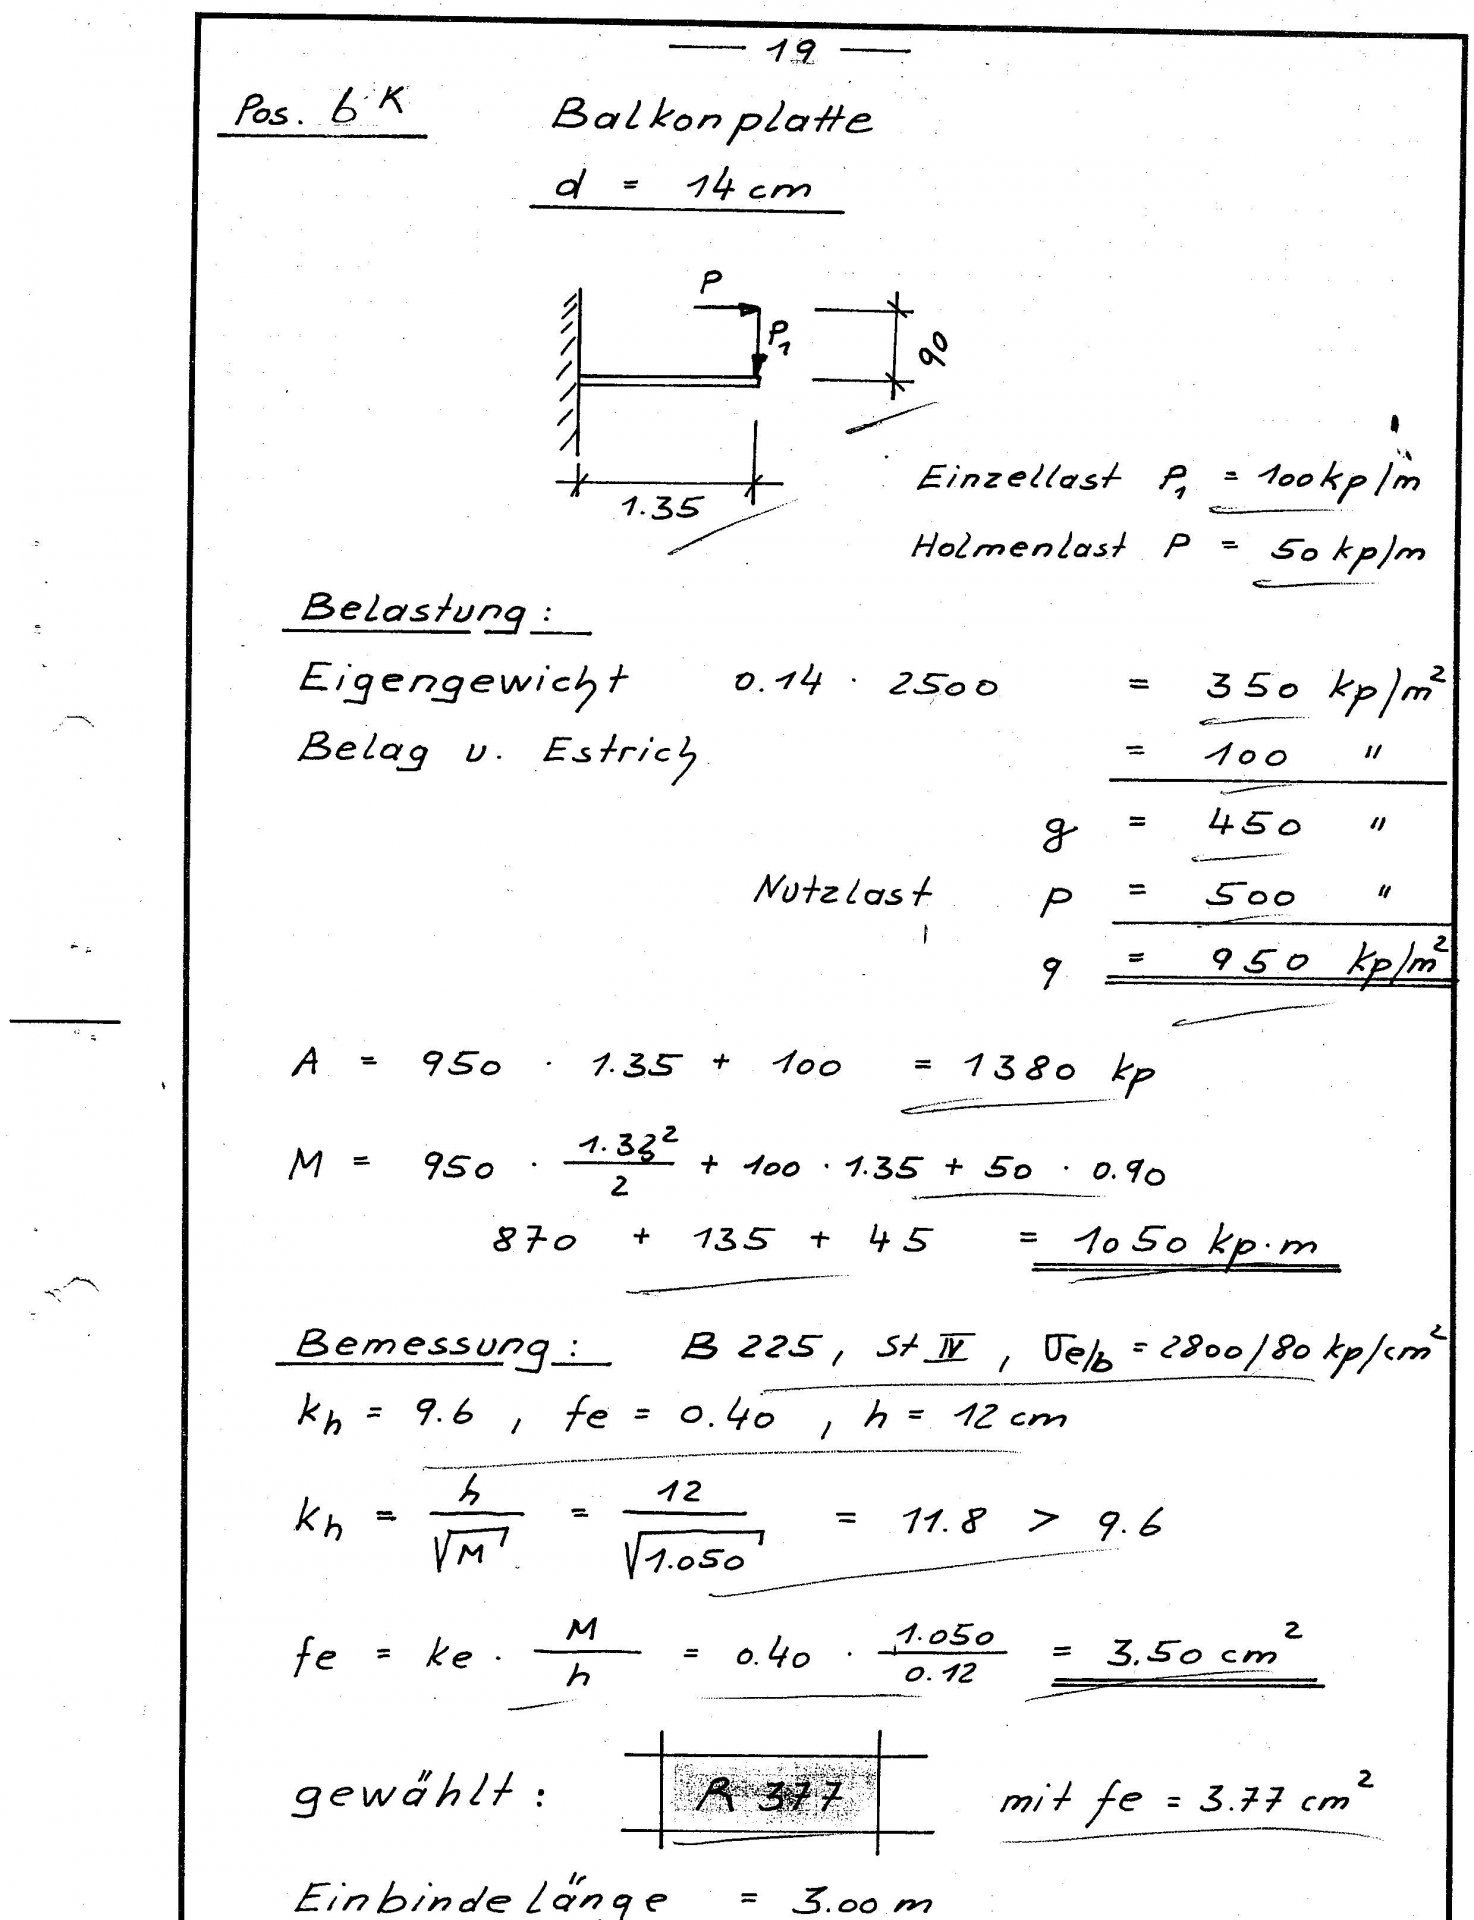 — 19 —
Pos. 6 K Balkonplatte
d = 14 cm
P
P₁
90
1.35
Einzellast P₁ = 100 kp/m
Holmenlast P = 50 kp/m
Belastung:
Eigengewicht 0.14 · 2500 = 350 kp/m²
Belag u. Estrich = 100 "
g = 450 "
Nutzlast p = 500 "
q = 950 kp/m²
A = 950 · 1.35 + 100 = 1380 kp
M = 950 · 1.35²/2 + 100 · 1.35 + 50 · 0.90
870 + 135 + 45 = 1050 kp·m
Bemessung: B 225, St IV, σe/b = 2800/80 kp/cm²
kh = 9.6, fe = 0.40, h = 12 cm
kh = h/√M = 12/√1.050 = 11.8 > 9.6
fe = ke · M/h = 0.40 · 1.050/0.12 = 3.50 cm²
gewählt: R 377 mit fe = 3.77 cm²
Einbindelänge = 3.00 m